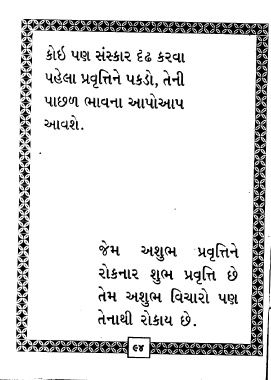 કોઈ પણ સંસ્કાર દૃઢ કરવા
પહેલા પ્રવૃત્તિને પકડો, તેની
પાછળ ભાવના આપોઆપ
આવશે.
જેમ અશુભ પ્રવૃત્તિને
રોકનાર શુભ પ્રવૃત્તિ છે
તેમ અશુભ વિચારો પણ
તેનાથી રોકાય છે.
૯૪